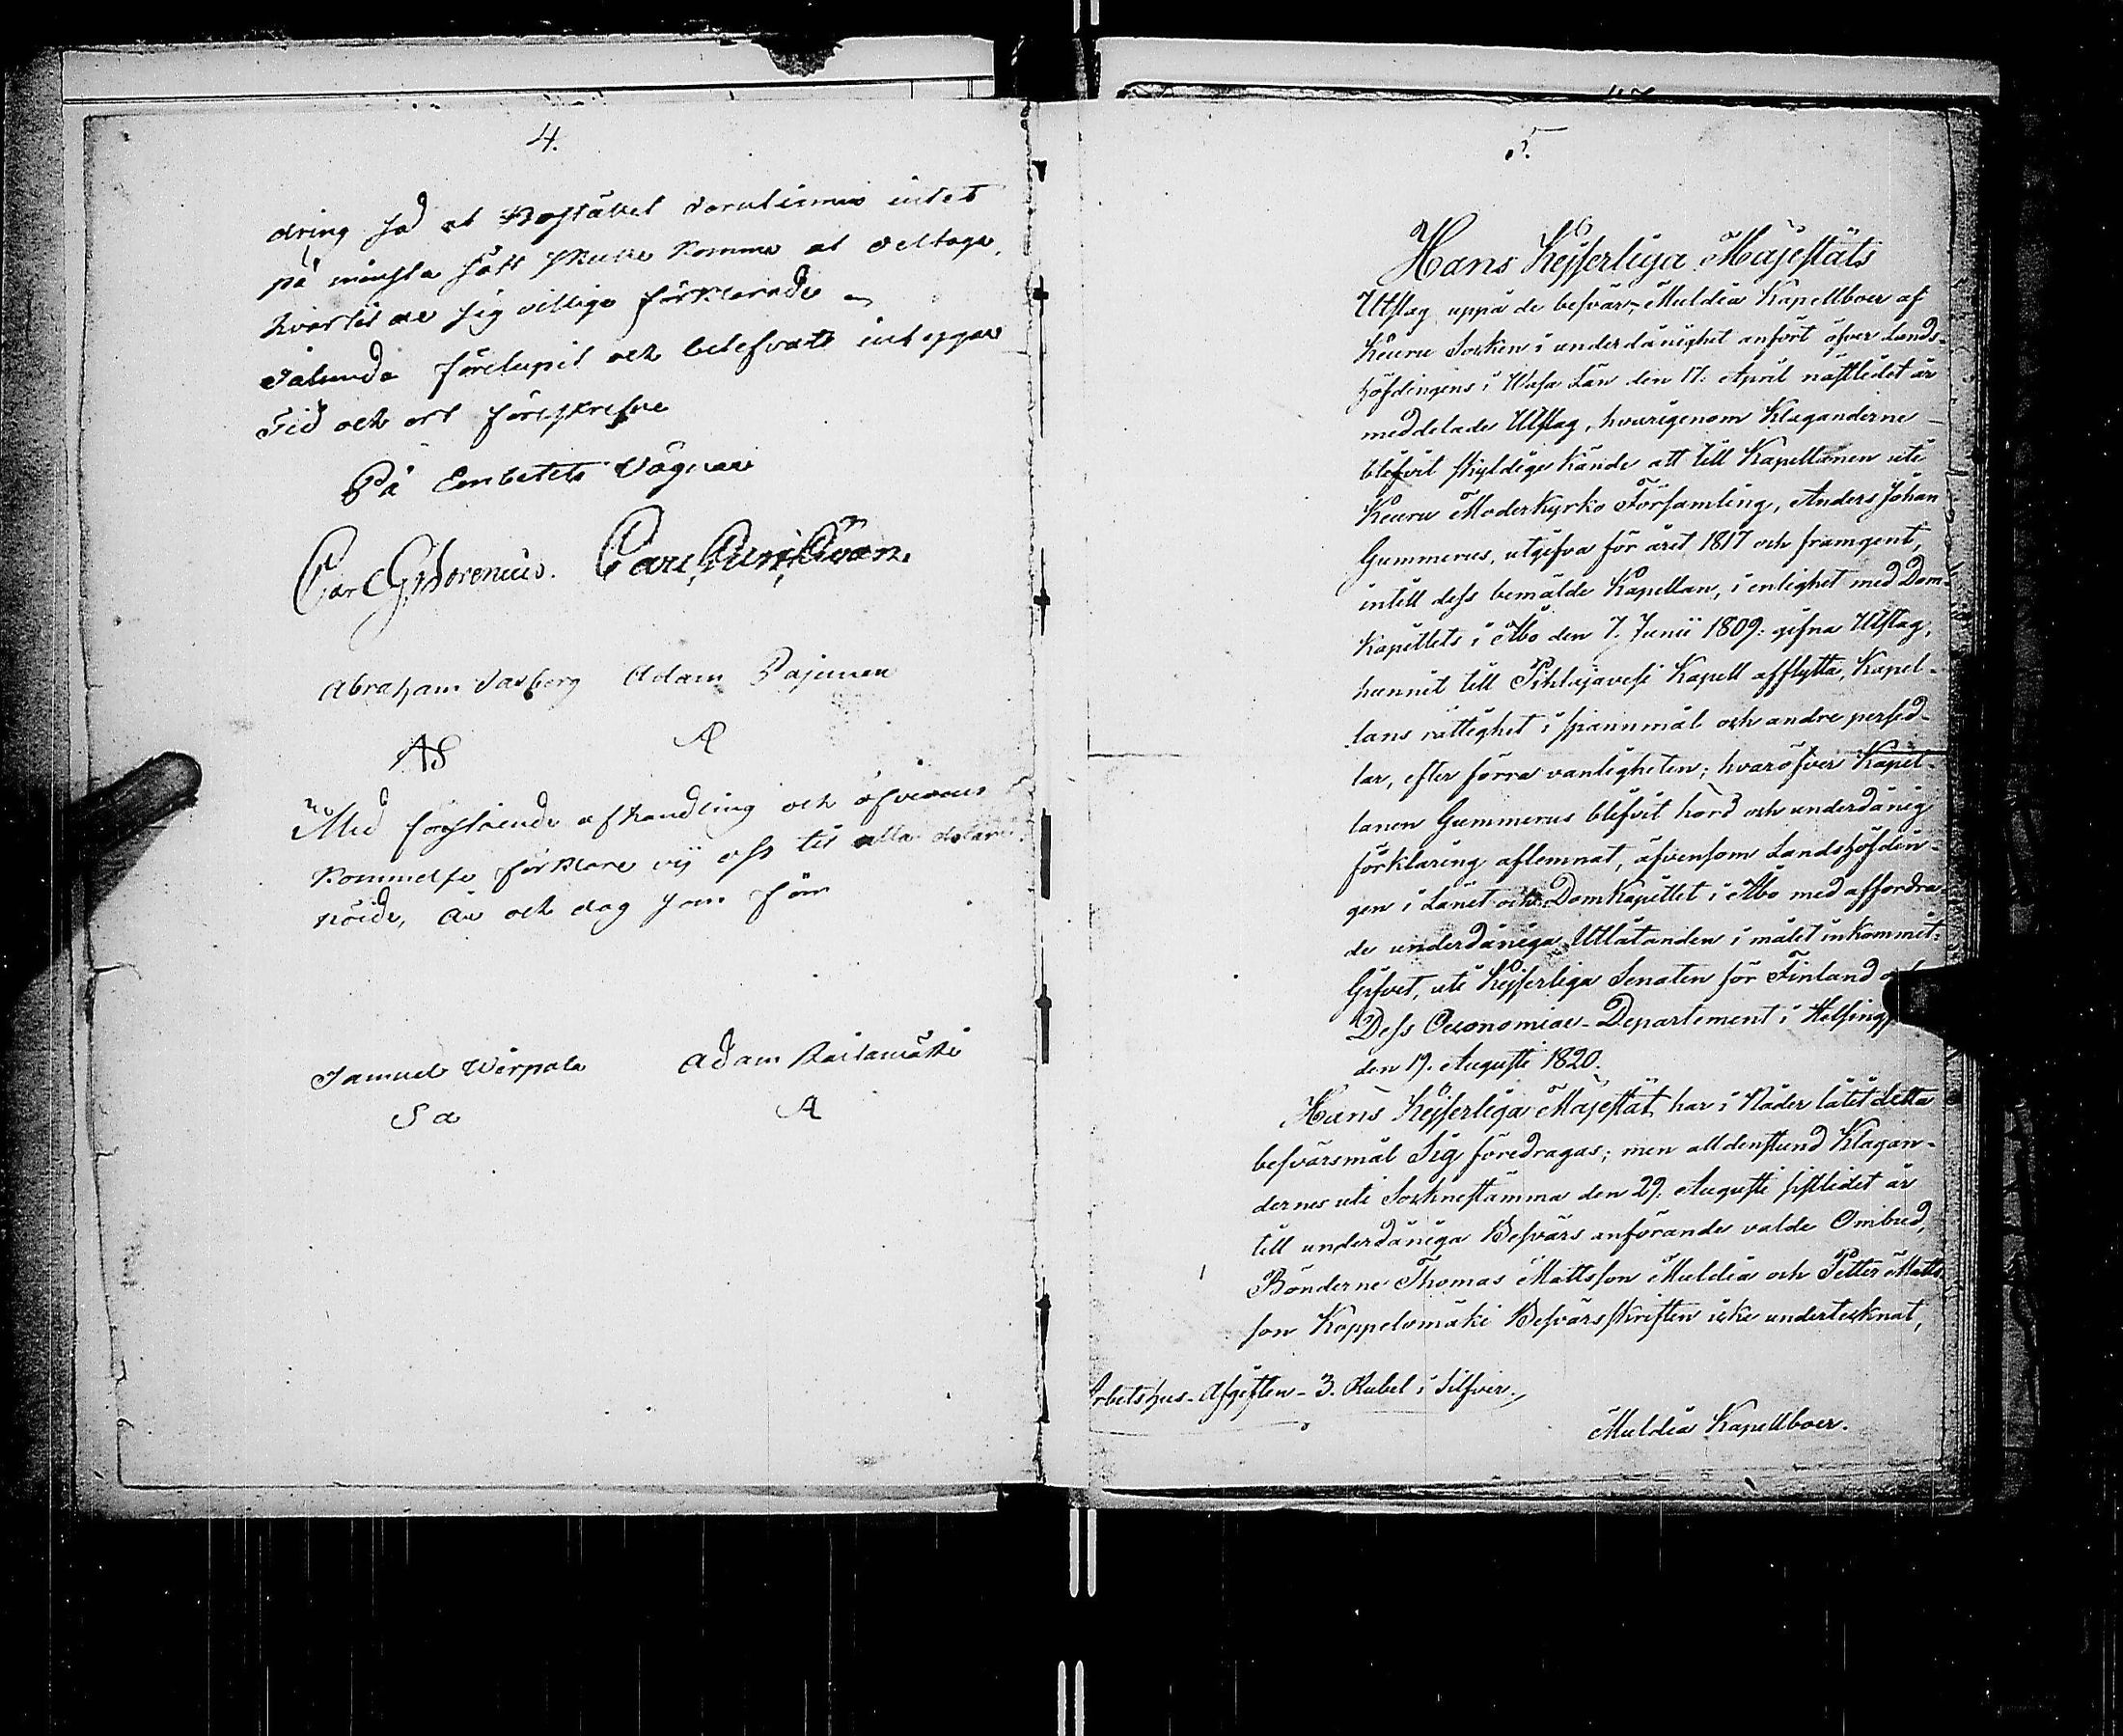 4.
dring så at Bostället intet
på minsta sätt skulle komma at deltaga,
hvartil de sig villige förklarade
Sålunda förelupit och intygar
Tid och ort föreskrefne
På Embetets Vägnar
Carl G. Carl
Abraham Adam Pajunen
AS A
Med förestående afhandling och öfverens
kommelse förklare vij oss til alla delar
nöide, År och dag som för
Samuel Wirpala Adam
Sa A
5.
Hans Kejserliga Majestäts
Utslag uppå de besvär, Muldia Kapellboer af
Keuru Socken i underdånighet anfört öfver Lands-
höfdingens i Wasa Län den 17. April nästledet år
meddelade Utslag, hvarigenom Klaganderne
blifvit skyldige kände att till Kapellanen uti
Keuru Moderkyrko Församling, Anders Johan
Gummerus, utgifva för året 1817 och framgent,
intill dess bemälde Kapellan, i enlighet med Dom-
Kapitlets i Åbo den 7. Junii 1809. gifna Utslag,
hunnit till Pihlajavesi Kapell afflytta, Kapel-
lans rättighet i spannmål och andre persed-
lar, efter förra vanligheten; hvaröfver Kapel-
lanen Gummerus blifvit hörd och underdånig
förklaring aflemnat, äfvensom Landshöfdin-
gen i Länet och DomKapitlet i Åbo med affordra-
de underdåniga Utlåtanden i målet inkommit.
Gifvet, uti Kejserliga Senaten för Finland
Dess Oeconomiae-Departement i Helsing
den 19. Augusti 1820.
Hans Kejserliga Majestät har i Nåder låtit detta
besvärsmål Sig föredragas; men alldenstund Klagan-
dernes uti Sockenstämma den 29. Augusti sistledet år
till underdåniga Besvärs anförande valde Ombud,
Bönderne Thomas Mattsson Muldia och Petter Matts
son Koppelomäki Besvärsskriften icke undertecknat,
Arbetshus-Afgiften - 3. Rubel i Silfver.
Muldia Kapellboer.